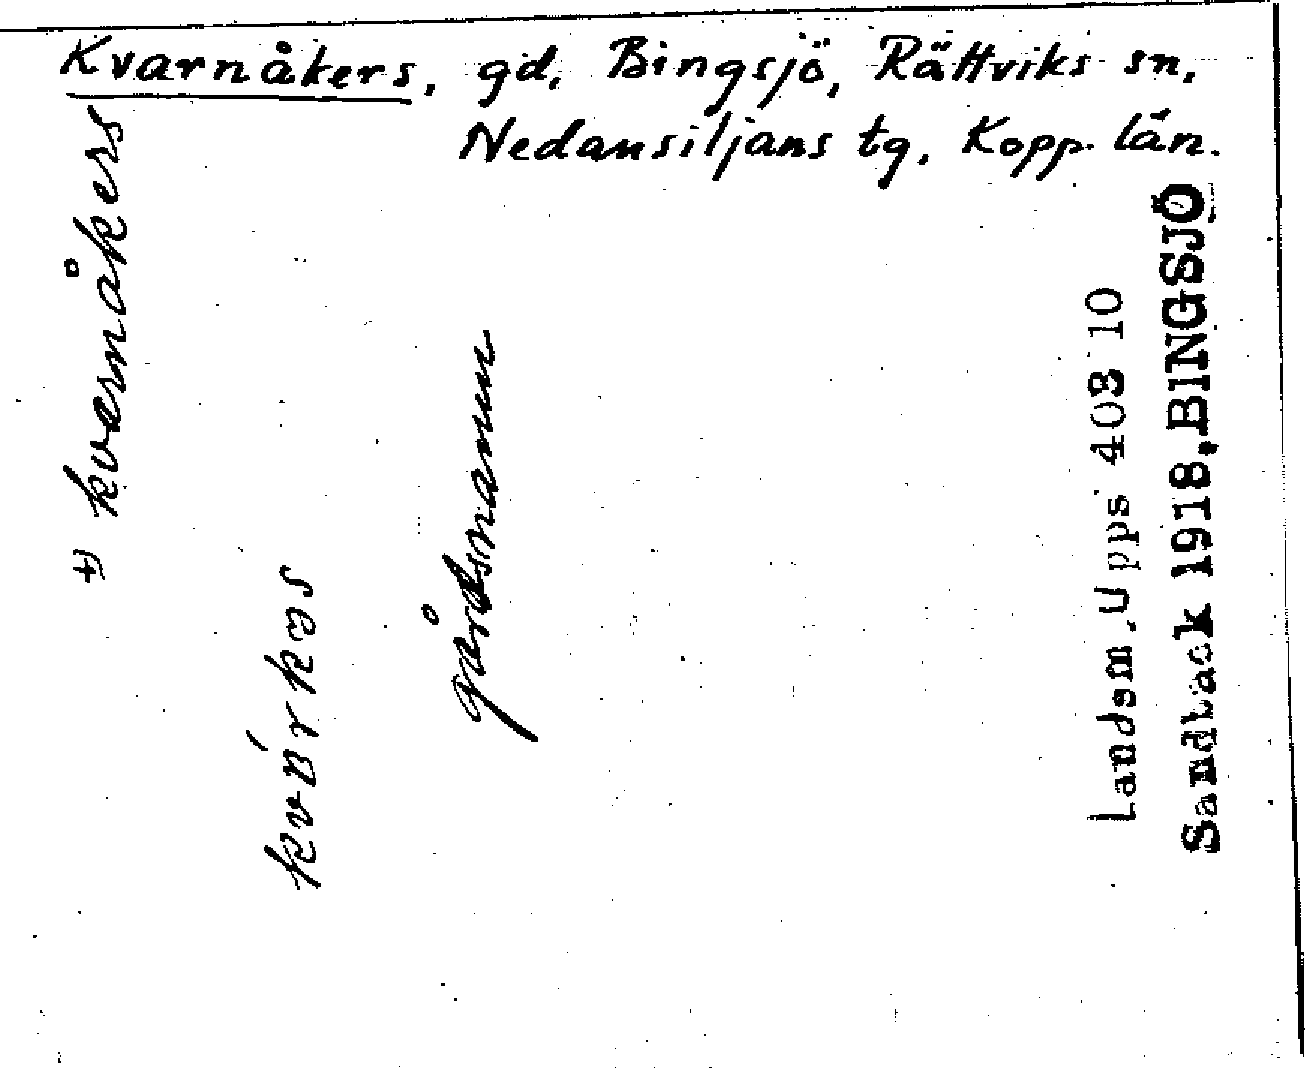 Kvarnåkers, gd, Bingsjö, Rättviks sn,
Nedansiljans tg, Kopp. län.
+) kvarnåkers
kvárkəs
gårdsnamn
Landsm.Upps 403 10
Sandback 1918,BINGSJÖ